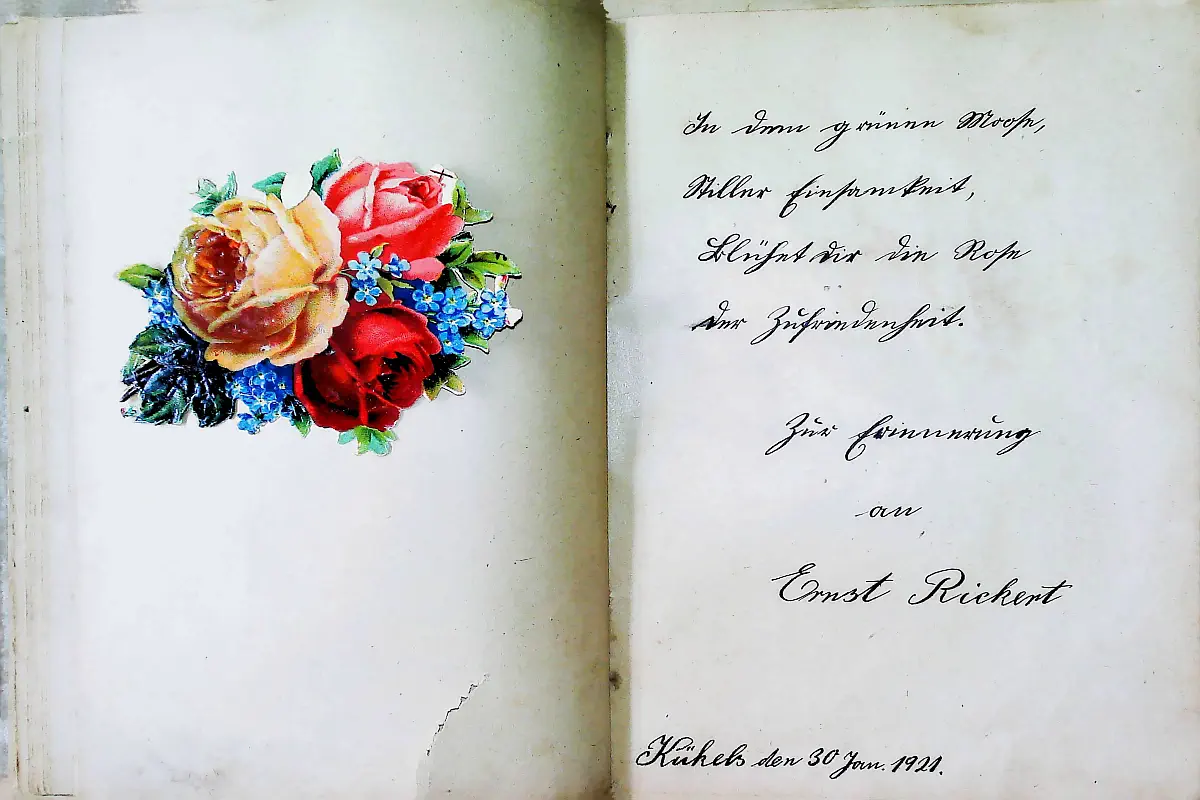 In dem grünen Moose,
Stiller Einsamkeit,
Blühet dir die Rose
der Zufriedenheit.
Zur Erinnerung
an
Ernst Rickert
Kühels den 30 Jan. 1921.